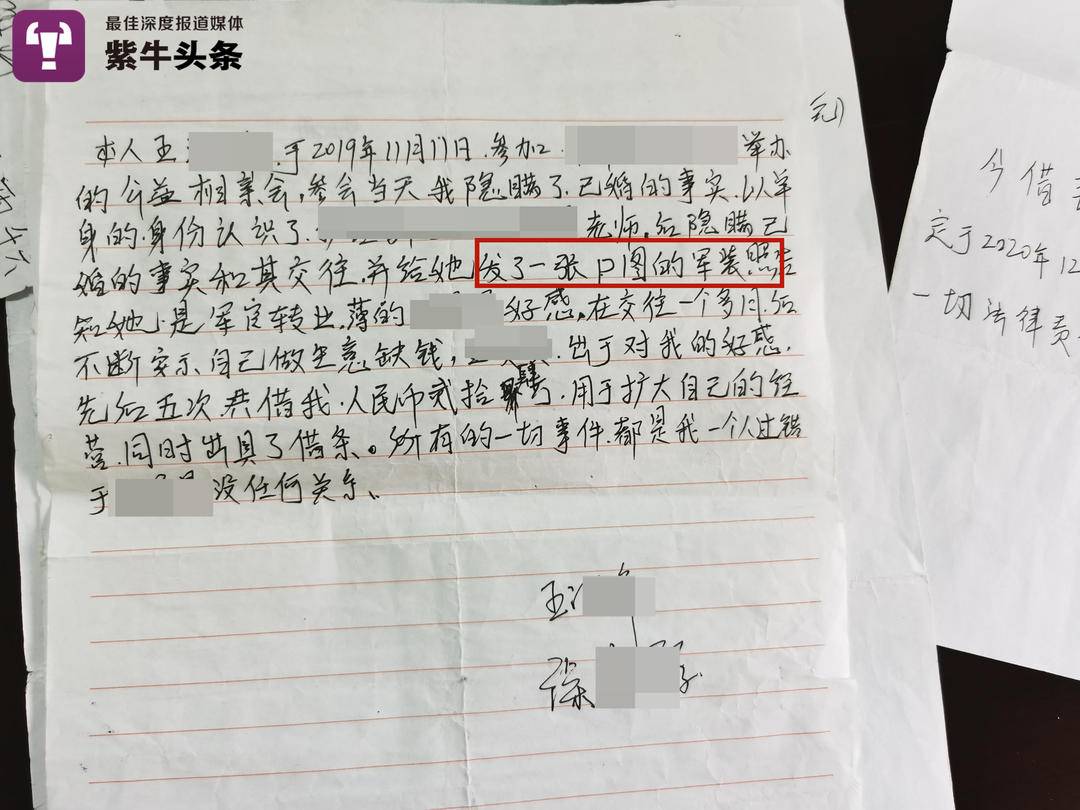 最佳深度报道媒体
紫牛头条
本人王 于2019年11月11日.参加 举办
的公益相亲会,参会当天我隐瞒了已婚的事实.以单
身的身份认识了 老师。红隐瞒已
婚的事实和其交往.并给她发了一张P图的军装照告
知她.是军官转业.薄的 好感.在交往一个多月后
不断安示自己做生意缺钱, 出于对我的好感.
先后五次.共借我.人民币贰拾肆万.用于扩大自己的经
营.同时出具了借条。所有的一切事件.都是我一个人过错
于 没任何关系、
王
元)
今借
定于2020年12
一切法律责